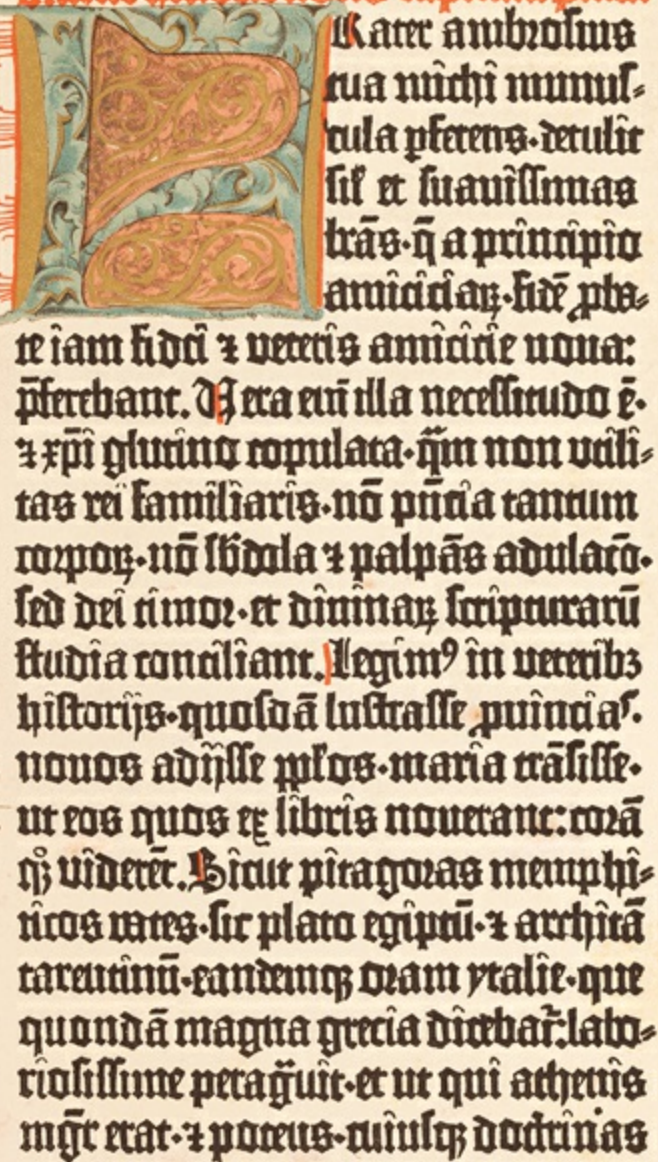 Frater ambrosius
tua michi munus-
cula ꝑferens·detulit
sił et suauissimas
lrãs·q̃ a principio
amiciciaꝝ·fidẽ ꝓba-
te iam fidei ⁊ veteris amicicie noua:
p̃ferebant. Uera eni̅ illa necessitudo ẽ·
⁊ xp̅i glutino copulata·q̅m non utili-
tas rei familiaris·nõ pn̅cia tantum
corpoꝝ·nõ sb̅dola ⁊ palpãs adulacõ·
sed dei timor·et diuinaꝝ scripturarũ
studia conciliant. Legimꝰ in veteribꝫ
historijs·quosdã lustrasse ꝓuincias·
nouos adijsse pp̅los·maria trãsisse·
ut eos quos ex libris nouerant: corã
qꝫ viderẽt. Sicut pitagoras memphi-
ticos vates·sic plato egiptũ·⁊ architã
tarentinũ·eandemqꝫ oram ytalie·que
quondã magna grecia dicebat᷑: labo-
riosissime perag̃uit·et ut qui athenis
mgr̃ erat·⁊ potens·cuiusqꝫ doctrinas